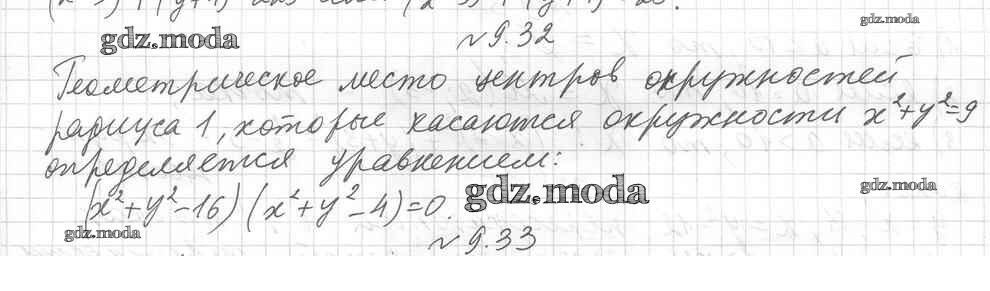 gdz.moda
gdz.moda
№9.32
Геометрическое место центров окружностей
радиуса 1, которые касаются окружности x²+y²=9
определяется уравнением:
(x²+y²-16)(x²+y²-4)=0.
gdz.moda
gdz.moda
gdz.moda
№9.33